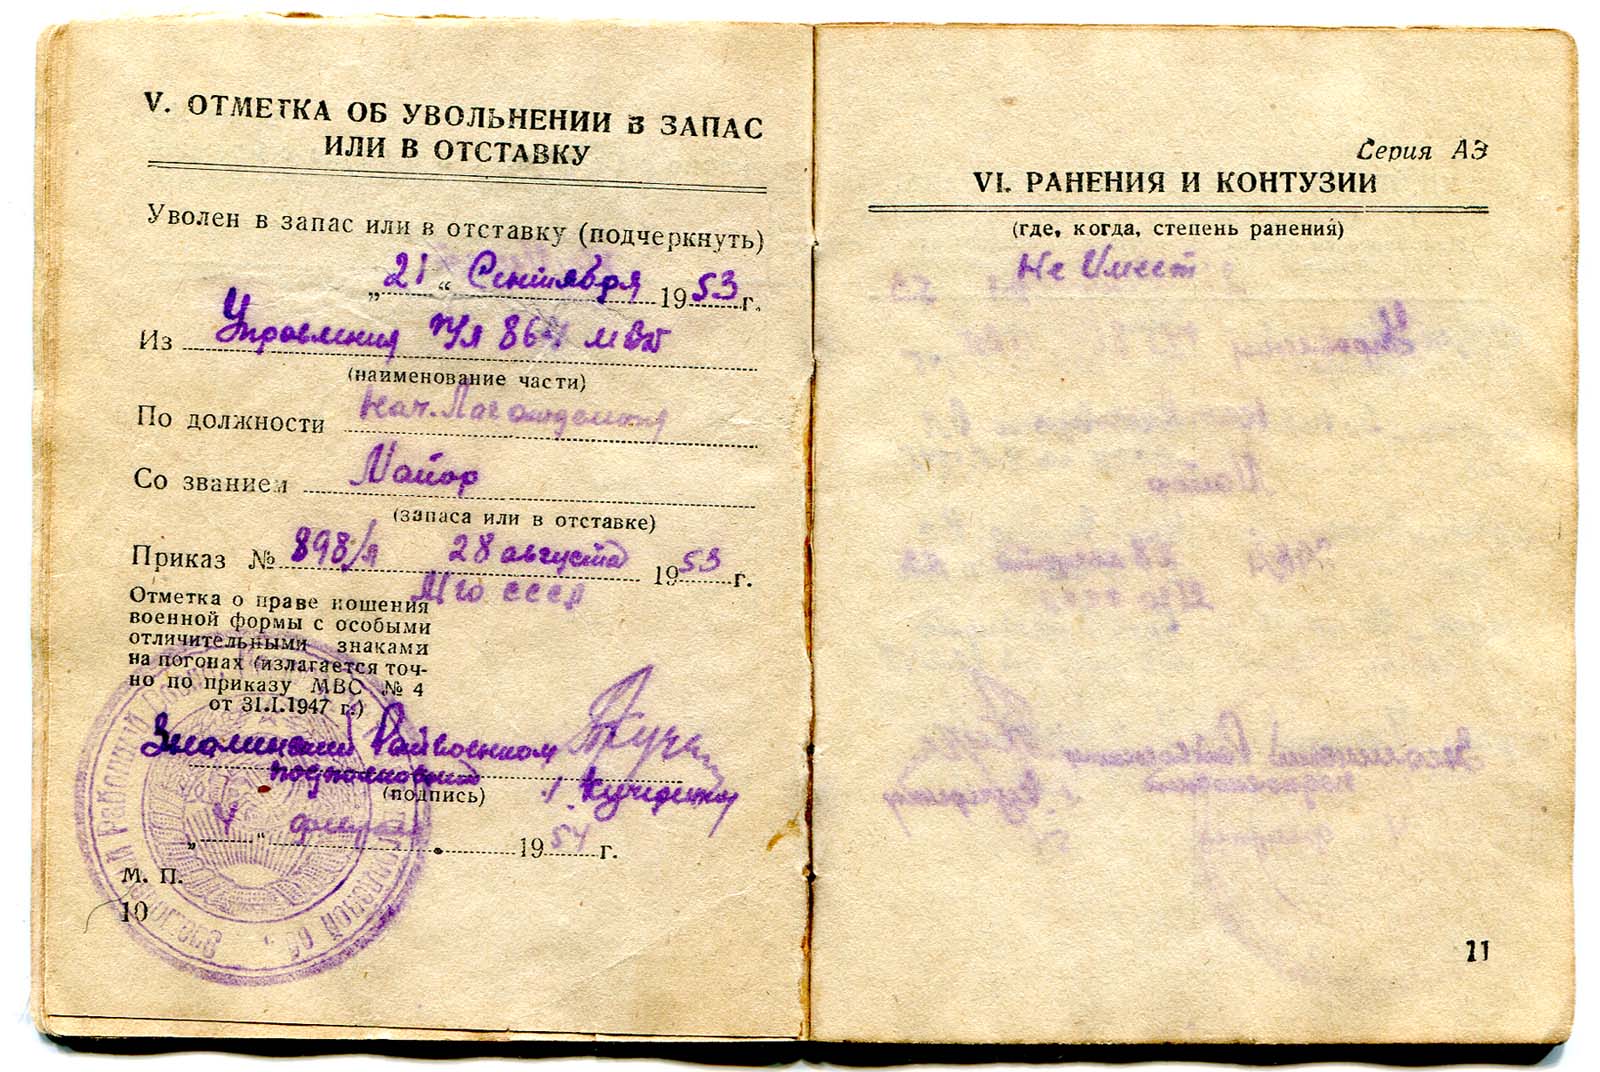 V. ОТМЕТКА ОБ УВОЛЬНЕНИИ В ЗАПАС
ИЛИ В ОТСТАВКУ
Уволен в запас или в отставку (подчеркнуть)
„21“ Сентября 1953 г.
Из Управления п/я 864 МВД
(наименование части)
По должности Нач. Лаготделения
Со званием Майор
(запаса или в отставке)
Приказ № 898/л 28 августа 1953 г.
СССР
Отметка о праве ношения
военной формы с особыми
отличительными знаками
на погонах (излагается точ-
но по приказу МВС № 4
от 31.I.1947 г.)
Райвоенком
подполковник
(подпись)
„4“ февраля 1954 г.
М. П.
10
Серия АЭ
VI. РАНЕНИЯ И КОНТУЗИИ
(где, когда, степень ранения)
Не Имеет
11